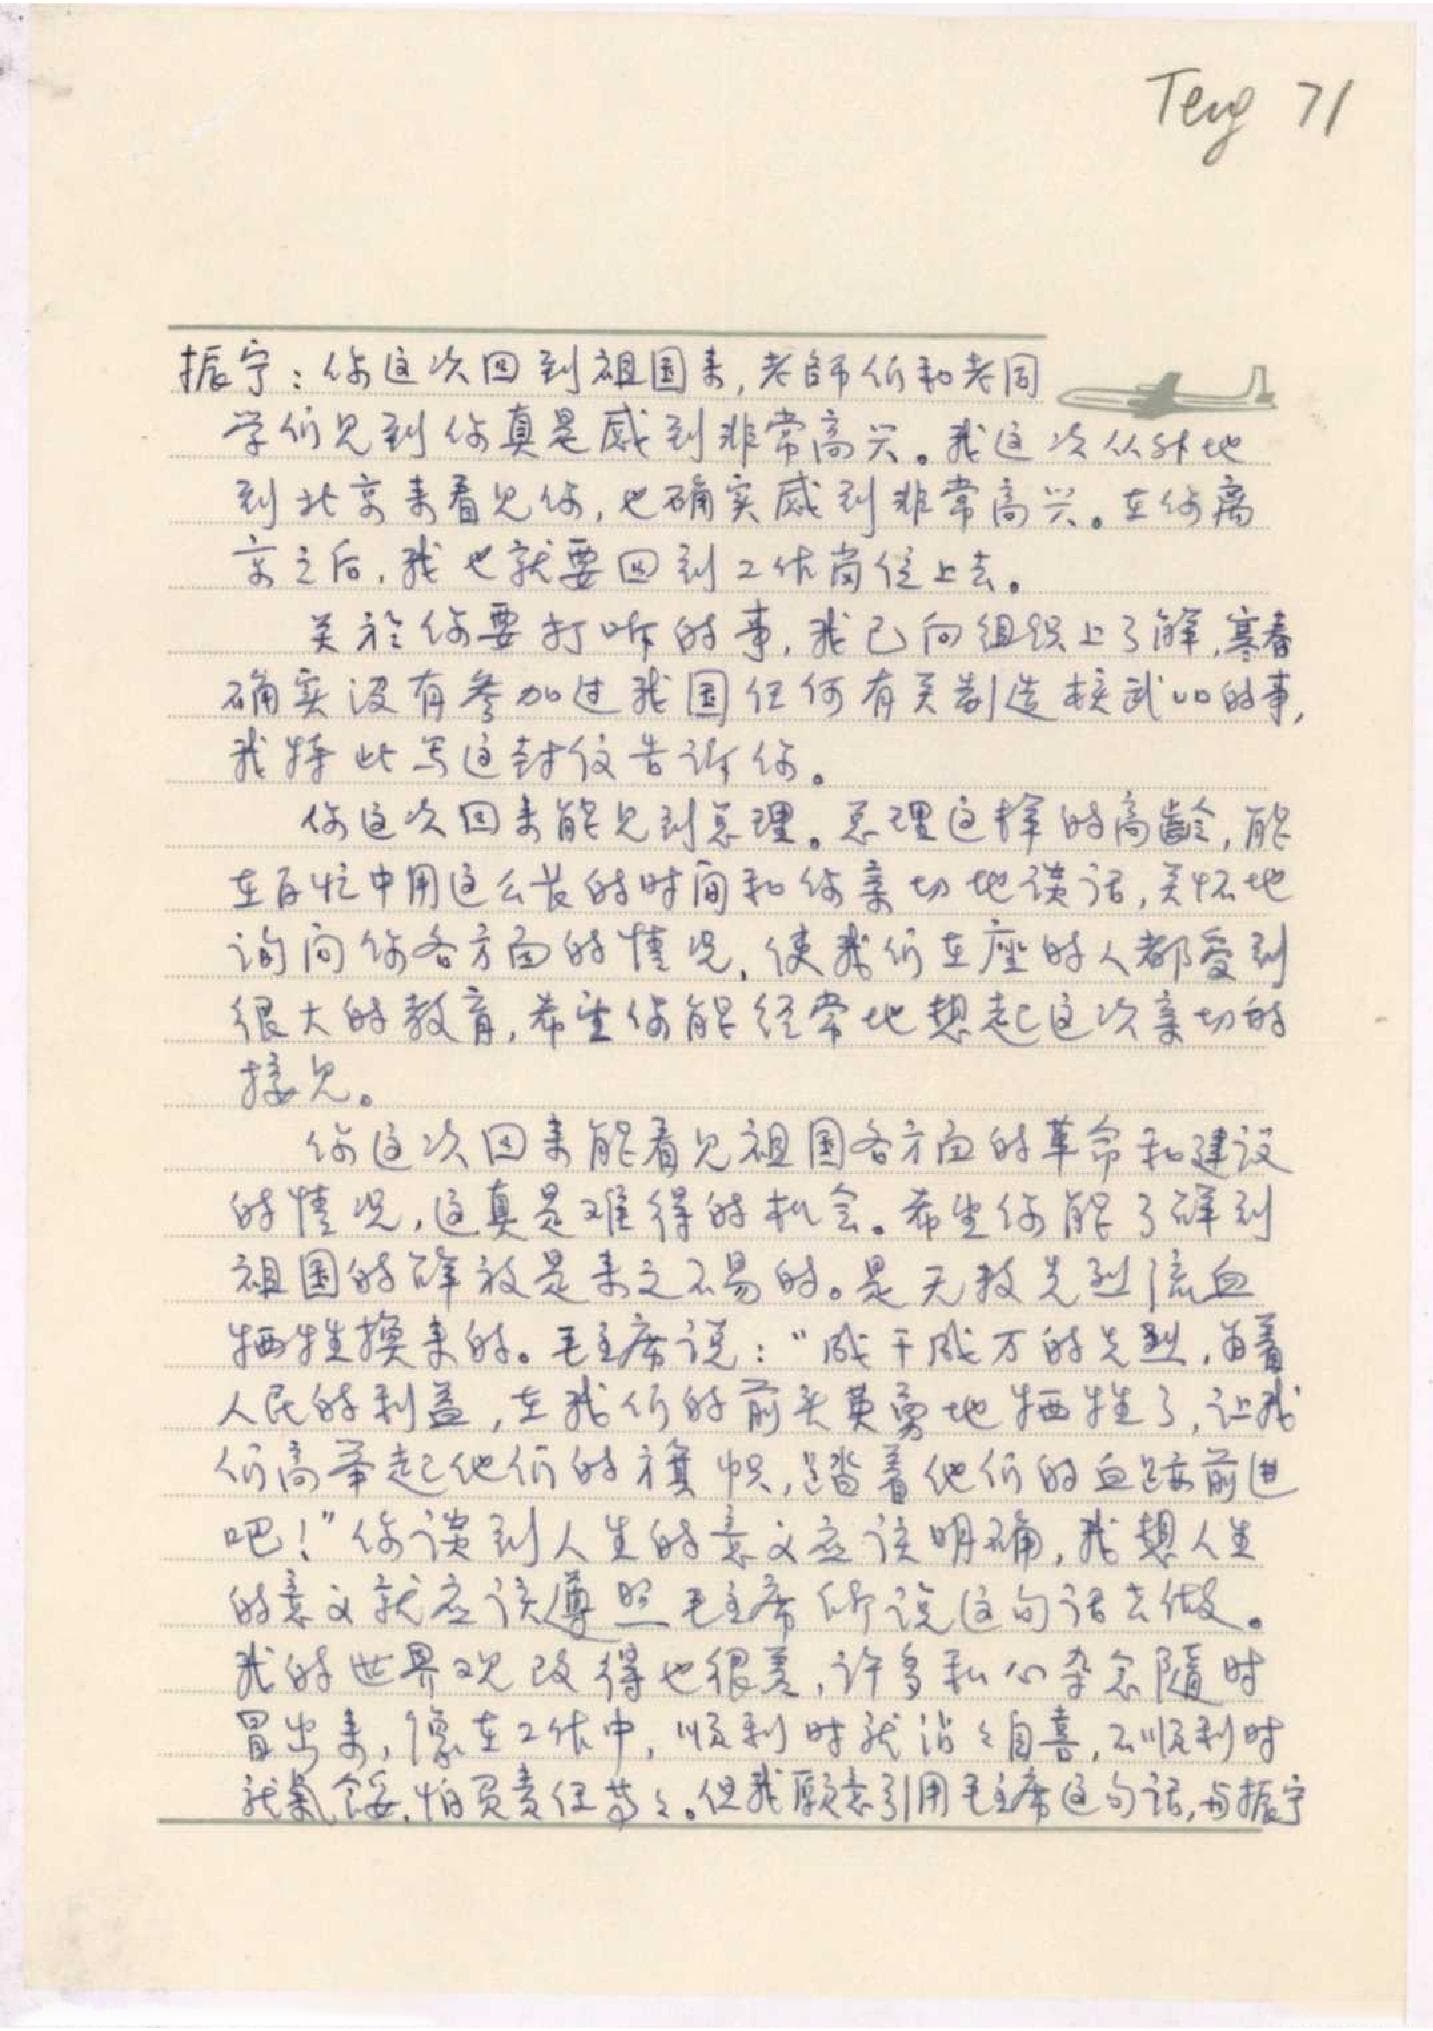 Teng 71
振宁：你这次回到祖国来，老師们和老同
学们见到你真是感到非常高兴。我这次从外地
到北京来看见你，也确实感到非常高兴。在你离
京之后，我也就要回到工作岗位上去。
关於你要打听的事，我已向组织上了解，寒春
确实没有参加过我国任何有关制造核武口的事，
我特此写这封信告诉你。
你这次回来能见到总理。总理这样的高龄，能
在百忙中用这么长的时间和你亲切地谈话，关怀地
询问你各方面的情况，使我们在座的人都受到
很大的教育，希望你能经常地想起这次亲切的
接见。
你这次回来能看见祖国各方面的革命和建设
的情况，这真是难得的机会。希望你能了解到
祖国的解放是来之不易的。是无数先烈流血
牺牲换来的。毛主席说：“成千成万的先烈，为着
人民的利益，在我们的前头英勇地牺牲了，让我
们高举起他们的旗帜，踏着他们的血迹前进
吧！”你谈到人生的意义应该明确，我想人生
的意义就应该遵照毛主席所说这句话去做。
我的世界观改得也很差，许多私心杂念随时
冒出来，像在工作中，顺利时就沾々自喜，不顺利时
就氣餒，怕负责任等々。但我愿意引用毛主席这句话，与振宁